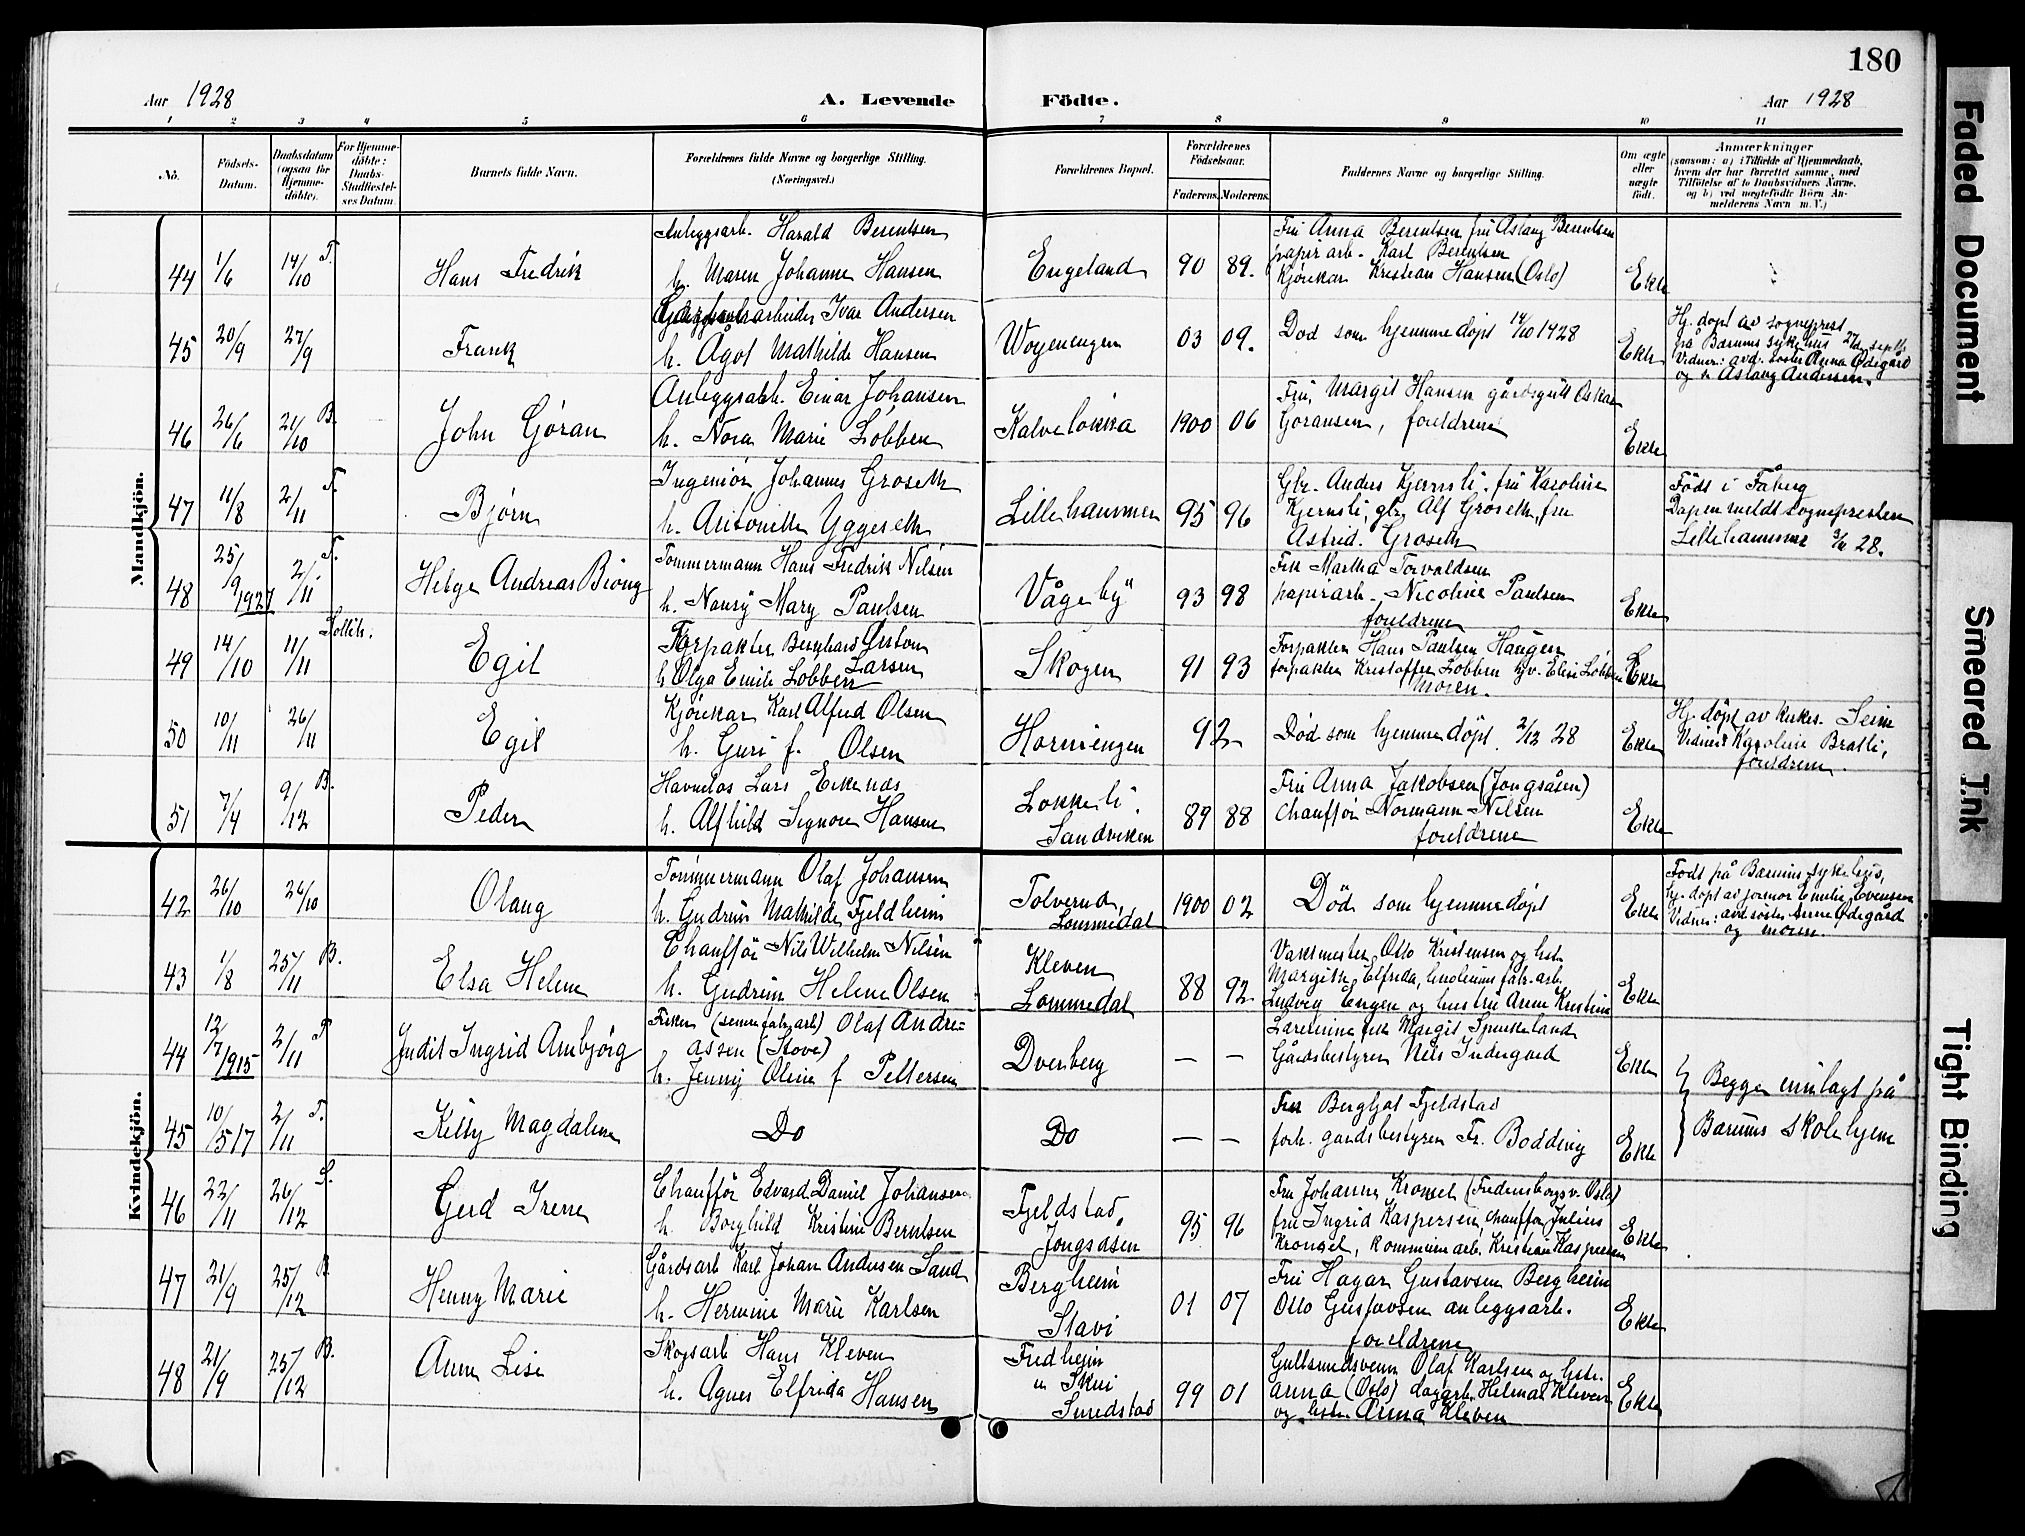 180
Aar 1928
A. Levende Födte.
Aar 1928
1 2 3 4 5 6 7 8 9 10 11
No.
Födsels-Datum.
Daabsdatum (ogsaa for Hjemmedöbte).
For Hjemmedöbte: Daabs-Stadfæstelses Datum.
Barnets fulde Navn.
Forældrenes fulde Navne og borgerlige Stilling.
(Næringsvei.)
Forældrenes Bopæl.
Forældrenes Födselsaar.
Faderens. Moderens.
Faddernes Navne og borgerlige Stilling.
Om ægte eller uægte födt.
Anmærkninger
(saasom: a) i Tilfælde af Hjemmedaab,
hvem der har forrettet samme, med
Tilföielse af to Daabsvidners Navne,
og b) ved uegtefödte Börn An-
melderens Navn m. V.)
Mandkjön.
44 1/6 14/10 T. Hans Fredrik
Anleggsarb. Harald Berentsen
h. Maren Johanne Hansen
Engeland 90 89.
Fru Anna Berentsen fru Aslaug Berentsen
papirarb. Karl Berentsen
Kjørekar Kristian Hansen (Oslo)
Ekte
45 20/9 27/9 Frank
arbeider Ivar Andersen
h. Ågot Mathilde Hansen
Wøyenengen 03 09.
Død som hjemmedøpt 14/10 1928
Ekte
Hj. døpt av sogneprest
på Bærums sykehus 27de sept.
Vidner: avd. søster Anna Ødegård
og Aslaug Andersen.
46 26/6 21/10 B. John Gøran
Anleggsarb. Einar Johansen
h. Nora Marie Løbben
Kalveløkka 1900 06
Fru Margit Hansen gårdsgutt Oskar
Gøransen, foreldrene
Ekte
47 11/8 2/11 T. Bjørn
Ingeniør Johannes Groseth
h. Antonette Yggeseth
Lillehammer 95 96
Gbr. Anders Kjernsli, fru Karoline
Kjernsli, gbr. Alf Groseth, fru
Astrid Groseth
Født i Fåberg
Dåpen meldt sognepresten
Lillehammer 28.
48 25/9 1927 2/11 T. Helge Andreas Biong
Tømmermann Hans Fredrik Nilsen
h. Nansy Mary Paulsen
Vågeby 93 98
Frk Martha Torvaldsen
papirarb. Nicoline Paulsen
foreldrene
Ekte
49 14/10 11/11 Lollik. Egil
Forpakter Berghard Anton Larsen
h Olga Emilie Løbben
Skogen 91 93
Forpakter Hans Paulsen Haugen
forpakter Kristoffer Løbben hv. Elise Løbben
moren.
Ekte
50 10/11 26/11 Egil
Kjørekar Karl Alfred Olsen
h. Guri f. Olsen
Horniengen 92
Død som hjemmedøpt 2/12 28
Ekte
Hj. døpt av kirkes. Seim
Vidner Karoline Bratli,
foreldrene.
51 7/4 9/12 B. Peder
Havnelos Lars Eikenæs
h. Alfhild Signore Hansen
Løkkeli
Sandviken
89 88
Fru Anna Jakobsen (Jongsåsen)
Chauffør Normann Nilsen
foreldrene
Ekte
Kvindekjön.
42 26/10 26/10 Olaug
Tømmermann Olaf Johansen
h. Gudrun Mathilde Fjeldheim
Tolverud,
Lommedal
1900 02
Død som hjemmedøpt
Ekte
Født på Bærums sykehus,
hj. døpt av jormor Emilie Evensen
Vidner: avd søster Anne Ødegård
og moren.
43 1/8 25/11 B. Elsa Helene
Chauffør Nils Wilhelm Nilsen
h. Gudrun Helene Olsen
Kleven
Lommedal
88 92
Vaktmester Otto Kristensen og hst.
Margith Elfrida, linoleums fabr. arb.
Ludvig Engen og hustru Anne Kristine
Ekte
44 12/7 1915 2/11 T Judit Ingrid Ambjørg
Fisker (senere fabr.arb) Olaf Andre-
assen (Stove)
h. Jenny Oline f Pettersen
Dverberg — —
Lærerinne frk Margit Spuckeland
Gårdsbestyrer Nils Indergaard
Ekte
45 10/5 17 2/11 T. Kitty Magdalene
Do
Do — —
Frk Bergljot Fjeldstad
forh. gardsbestyrer Fr. Bødding
Ekte
Begge innlagt på
Bærums skolehjem
46 22/11 26/12 S. Gerd Irene
Chauffør Edvard Daniel Johansen
h. Borghild Kristine Berntsen
Fjeldstad,
Jongsåsen
95 96
Fru Johanne Krongel (Fredensborgv. Oslo)
fru Ingrid Kaspersen, chauffør Julius
Krongel, kommunearb. Kristian Kaspersen
Ekte
47 21/9 25/12 B. Henny Marie
Gårdsarb Karl Johan Andersen Sand
h. Hermine Marie Karlsen
Bergheim
Stavi
01 07
Fru Hagar Gustavsen Bergheim
Otto Gustavsen anleggsarb.
foreldrene
Ekte
48 21/9 25/12 B. Anne Lise
Skogsarb Hans Kleven
h. Agnes Elfrida Hansen
Fredheim
n Skui
Smedstad
99 01
Gullsmedsvenn Olaf Karlsen og hst.
Anna (Oslo) dagarb. Helmar Kleven
og hstr. Anna Kleven
Ekte
Faded Document
Smeared Ink
Tight Binding